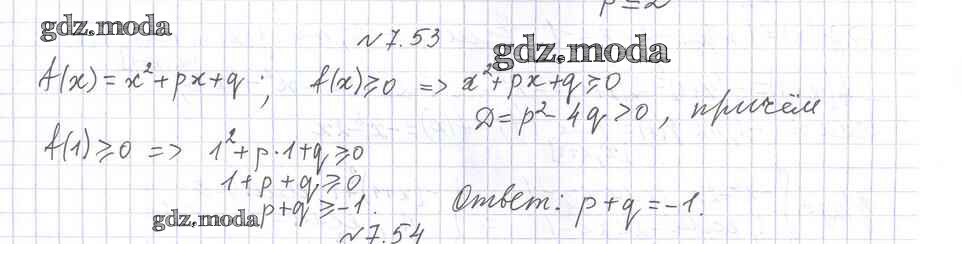 p=2
gdz.moda
№7.53
gdz.moda
A(x)=x²+px+q; A(x)≥0 => x²+px+q≥0
Д=p²-4q>0, причём
A(1)≥0 => 1²+p·1+q≥0
1+p+q≥0
gdz.moda p+q≥-1. Ответ: p+q=-1.
№7.54